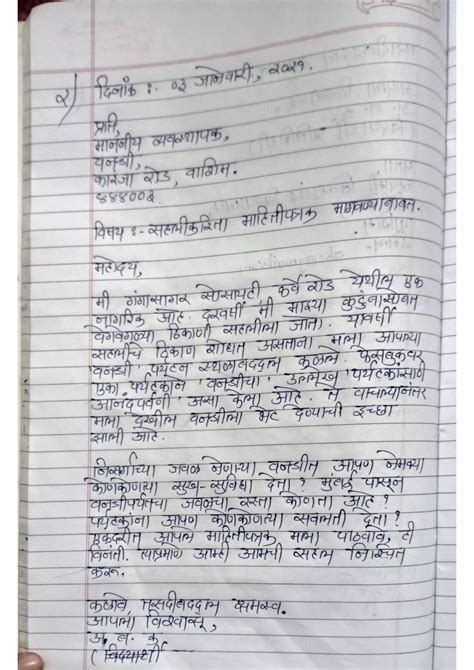 २) दिनांक :- ०३ जानेवारी, २०२१.
प्रति,
माननीय व्यवस्थापक,
वनश्री,
कारंजा रोड, वाशिम.
४४४००३
विषय :- सहलीकरिता माहितीपत्रक मागवण्याबाबत.
महोदय,
मी गंगासागर सोसायटी, कर्वे रोड येथील एक
नागरिक आहे. दरवर्षी मी माझ्या कुटुंबासोबत
वेगवेगळ्या ठिकाणी सहलीला जाते. यावर्षी
सहलीचे ठिकाण शोधत असताना मला आपल्या
वनश्री पर्यटन स्थळाबद्दल कळले. फेसबुकवर
एका पर्यटकाने 'वनश्रीचा' उल्लेख 'पर्यटकांसाठी
आनंदपर्वणी' असा केला आहे. ते वाचल्यानंतर
मला देखील वनश्रीला भेट देण्याची इच्छा
झाली आहे.
निसर्गाच्या जवळ नेणाऱ्या वनश्रीत आपण नेमक्या
कोणकोणत्या सुख-सुविधा देता? मुंबई पासून
वनश्रीपर्यंतचा जवळचा रस्ता कोणता आहे?
पर्यटकांना आपण कोणकोणत्या सवलती देता?
एकंदरीत आपले माहितीपत्रक मला पाठवावे, ही
विनंती. त्याप्रमाणे आम्ही आमची सहल निश्चित
करू.
कळावे, तसदीबद्दल क्षमस्व.
आपला विश्वासू,
अ. ब. क.
(विद्यार्थी